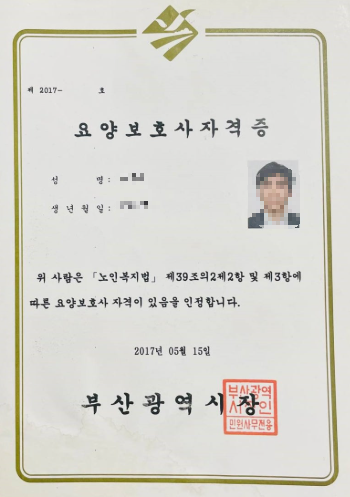 제 2017- 호
요양보호사자격증
성 명 :
생년월일 :
위 사람은 「노인복지법」 제39조의2제2항 및 제3항에
따른 요양보호사 자격이 있음을 인정합니다.
2017년 05월 15일
부산광역시장
부산광역
시장인
민원사무전용